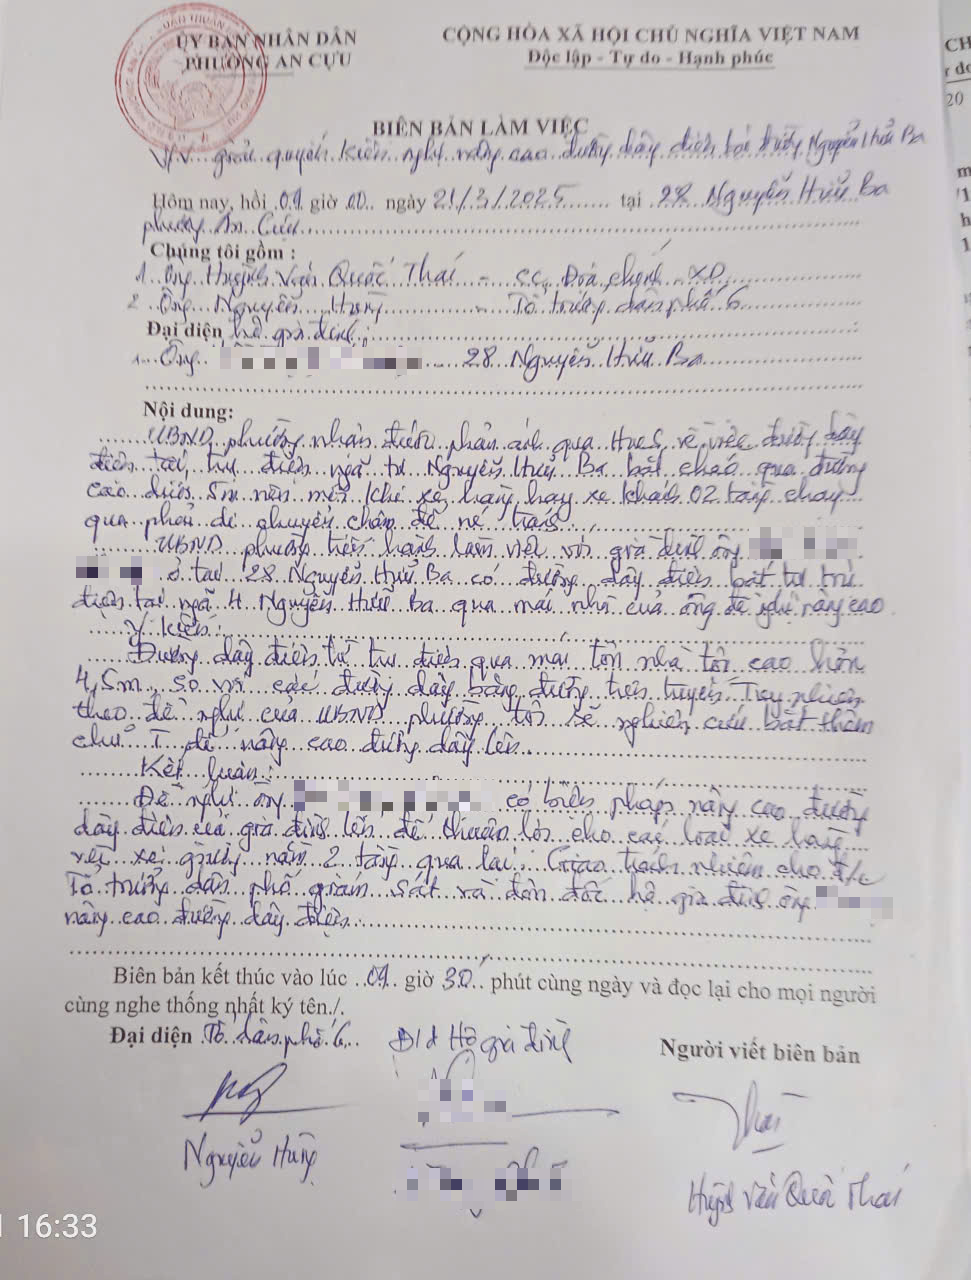 ỦY BAN NHÂN DÂN
PHƯỜNG AN CỰU
CỘNG HÒA XÃ HỘI CHỦ NGHĨA VIỆT NAM
Độc lập - Tự do - Hạnh phúc
CH
20
BIÊN BẢN LÀM VIỆC
V/v giải quyết kiến nghị nâng cao đường dây điện tại đường Nguyễn Hữu Ba
Hôm nay, hồi 09 giờ 00 ngày 21/3/2025 tại 28 Nguyễn Hữu Ba
phường An Cựu
Chúng tôi gồm :
1. Ông Huỳnh Văn Quốc Thái - CC. Địa chính - XD
2. Ông Nguyễn Hưng - Tổ trưởng dân phố 6
Đại diện hộ gia đình :
1. Ông 28 Nguyễn Hữu Ba
Nội dung:
UBND phường nhận được phản ánh qua HueS về việc đường dây
điện tại trụ điện ngã tư Nguyễn Hữu Ba bắt chéo qua đường
cao dưới 5m nên mỗi khi xe hàng hay xe khách 02 tầng chạy
qua phải di chuyển chậm để né tránh
UBND phường tiến hành làm việc với gia đình ông
ở tại 28 Nguyễn Hữu Ba có đường dây điện bắt từ trụ
điện tại ngã 4 Nguyễn Hữu Ba qua mái nhà của ông đề nghị nâng cao
Ý kiến:
Đường dây điện từ trụ điện qua mái tôn nhà tôi cao hơn
4,5m so với các đường dây băng đường trên tuyến. Tuy nhiên
theo đề nghị của UBND phường tôi sẽ nghiên cứu bắt thêm
chữ T để nâng cao đường dây lên
Kết luận:
Đề nghị ông có biện pháp nâng cao đường
dây điện của gia đình lên để thuận lợi cho các loại xe hàng
với xe giường nằm 2 tầng qua lại. Giao trách nhiệm cho đ/c
Tổ trưởng dân phố giám sát và đôn đốc hộ gia đình ông
nâng cao đường dây điện.
Biên bản kết thúc vào lúc 09 giờ 30 phút cùng ngày và đọc lại cho mọi người
cùng nghe thống nhất ký tên./.
Đại diện Tổ dân phố 6
Đ/d Hộ gia đình
Người viết biên bản
Nguyễn Hưng
Thái
Huỳnh Văn Quốc Thái
16:33